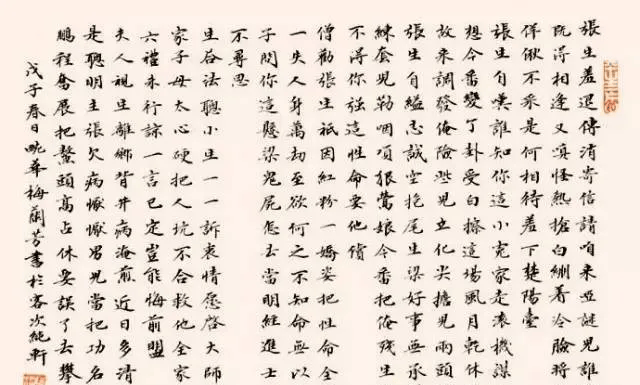 張生羞退傳消寄信請咱来啞謎兒誰
既得相逢又嗔怪熱搶白綳着冷臉將
俺俶不采是何相待羞下楚陽臺
張生自嘆誰知你這小冤家走滚機謀
想今番變了卦受白擦這場風月乾休
故来調發俺險些兒立化尖擔兒兩頭
張生自縊志誠空抱尾生梁好事無承
練套兒勒咽項狠鶯娘今番把俺残生
不得你強這性命要他償
僧勸張生祇因紅粉一嬌姿把性命全
一失人身萬劫至欲何之不知命無以
子問你這懸梁鬼屍怎去當明經進士
不尋思
生咨法聰小生一一訴衷情愿啓大師
家子母太心硬把人坑不合救他全家
六禮未行諒一言已定豈能悔前盟
夫人視生離鄉背井病淹煎近日多清
是聰明主張欠病懨懨男兒當把功名
鵬程奮展把鰲頭高占休要誤了去攀
戊子春日畹華梅蘭芳書於客次純軒